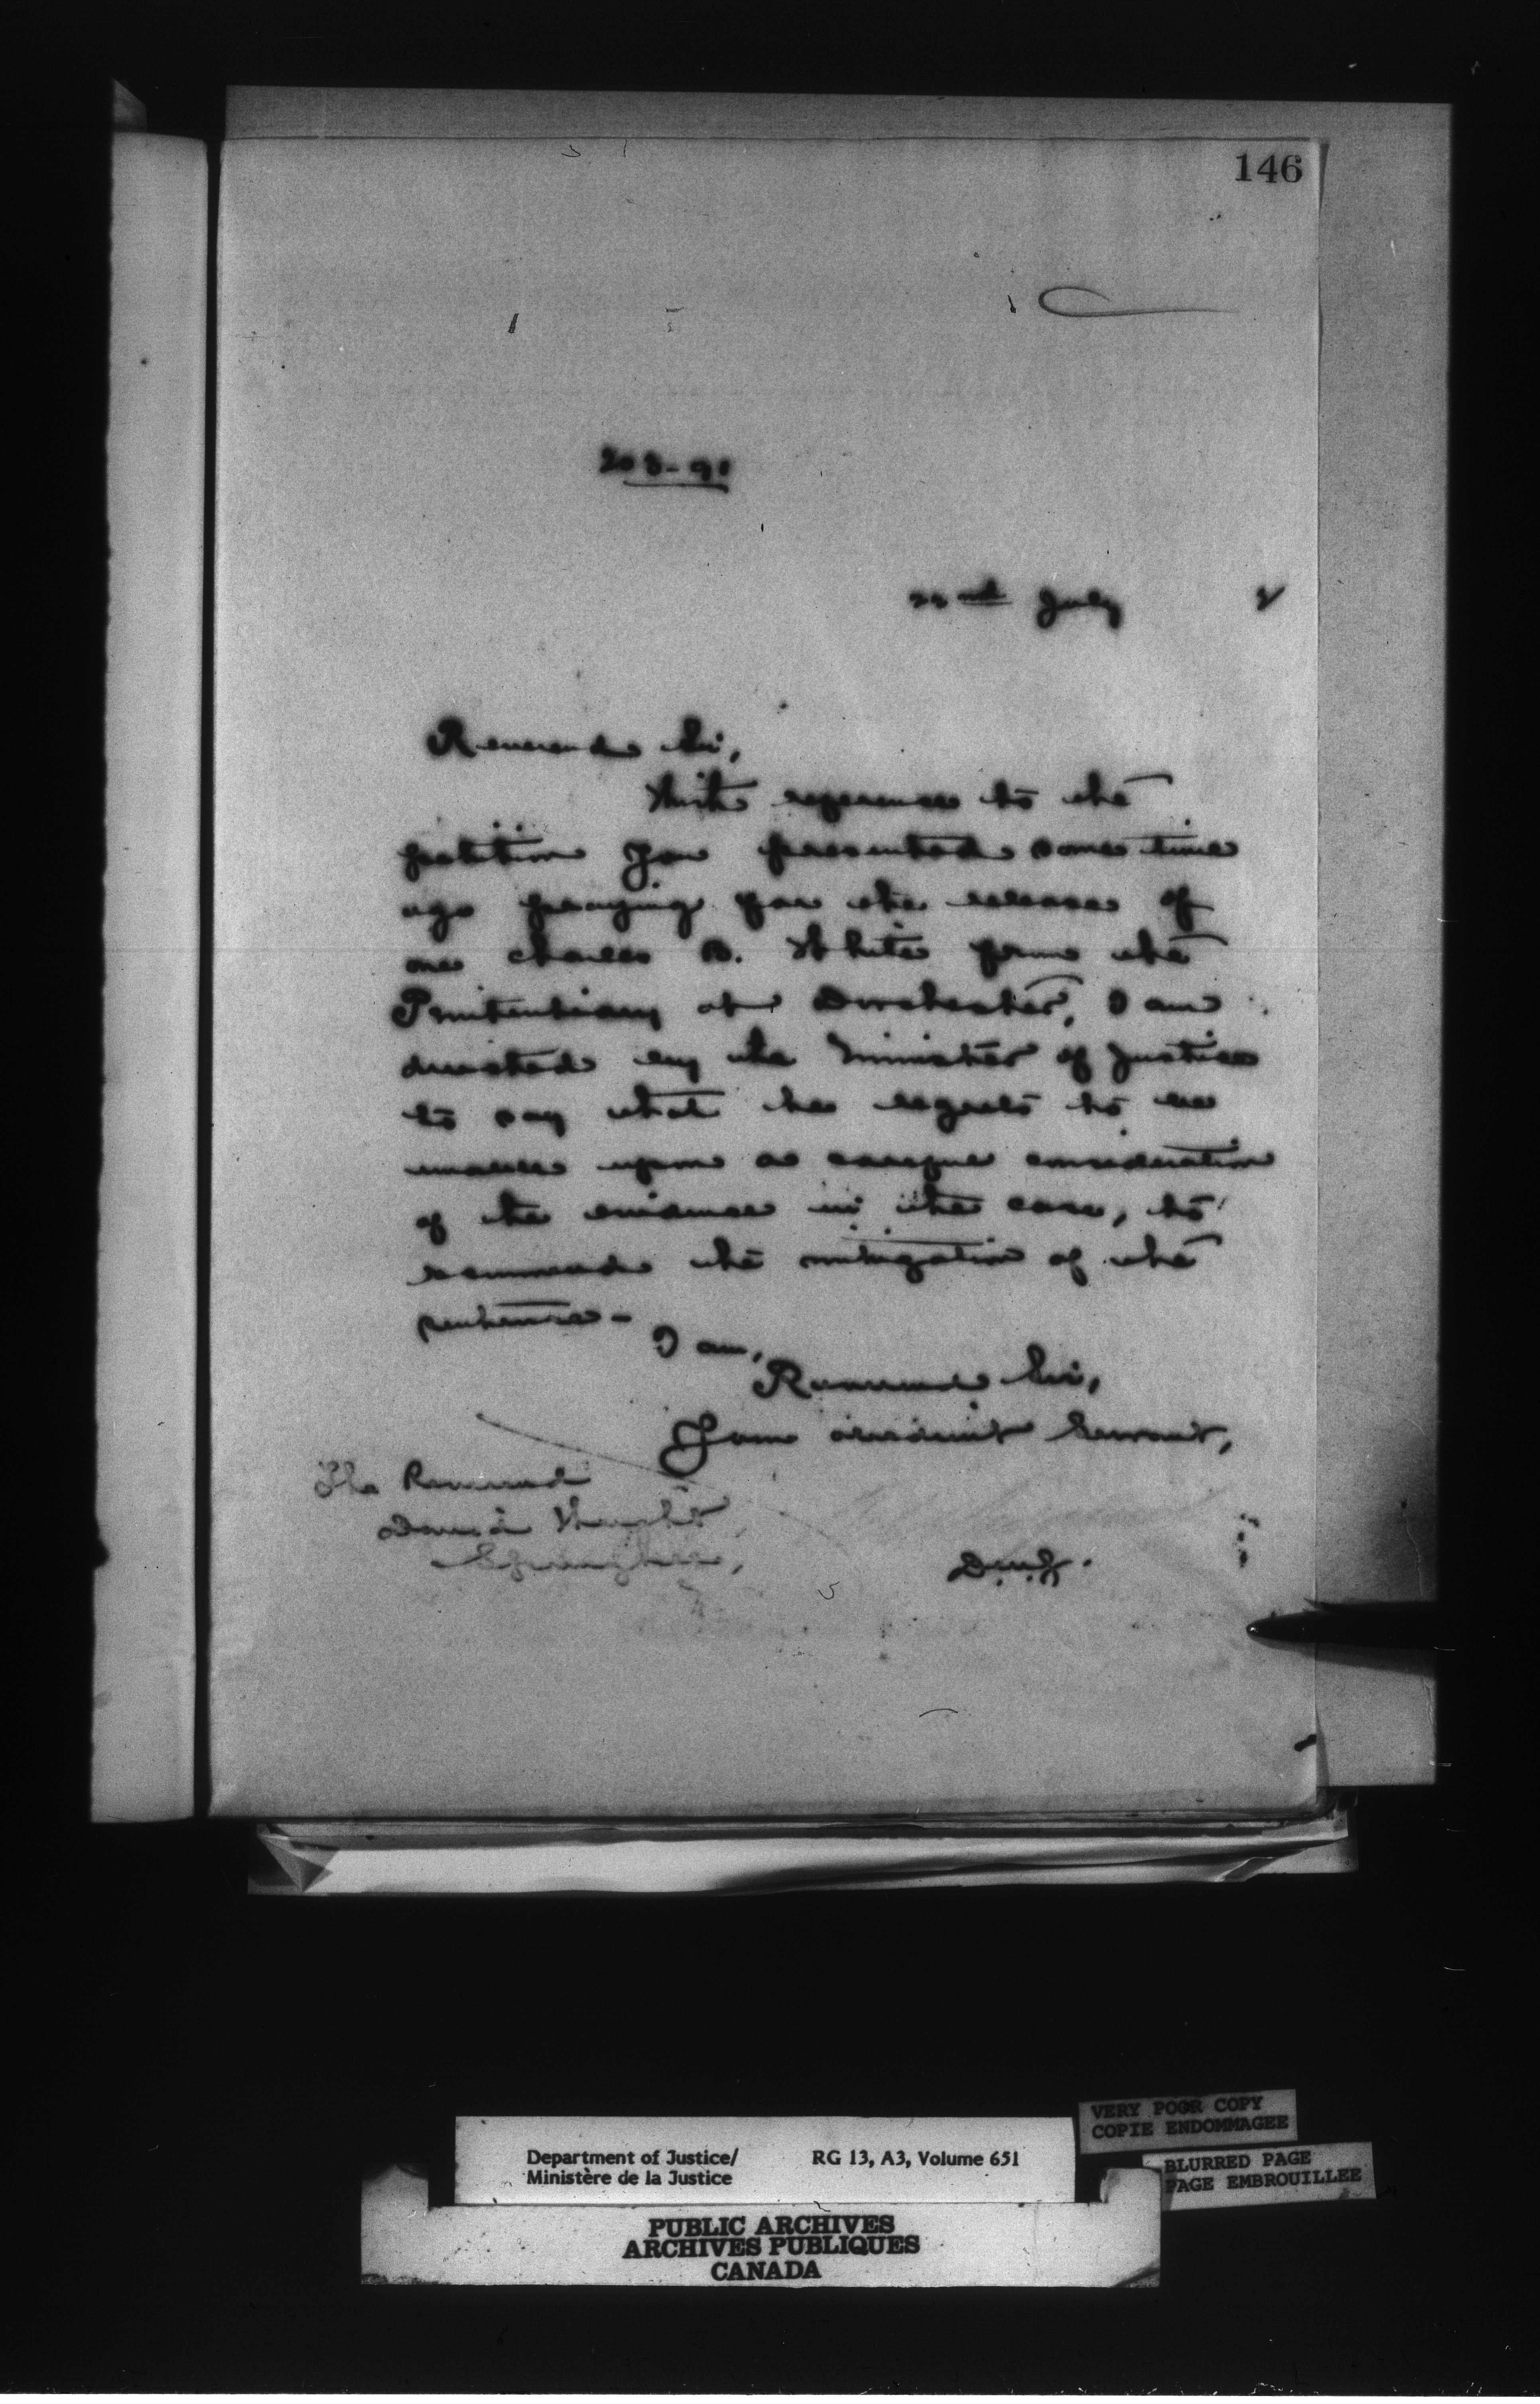 146
203-91
22nd July 2
Reverend Sir,
With reference to the
petition you presented some time
ago praying for the release of
one Charles B. White from the
Penitentiary at Dorchester, I am
directed by the Minister of Justice
to say that he regrets to be
unable upon a careful consideration
of the evidence in the case, to
recommend the mitigation of the
sentence -
I am,
Reverend Sir,
Your obedient Servant,
The Reverend
David Wright
Springhill,
Department of Justice/ RG 13, A3, Volume 651
Ministère de la Justice
VERY POOR COPY
COPIE ENDOMMAGEE
BLURRED PAGE
PAGE EMBROUILLEE
PUBLIC ARCHIVES
ARCHIVES PUBLIQUES
CANADA